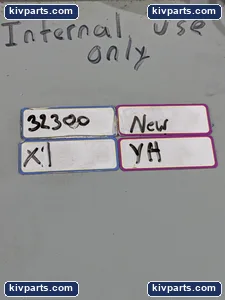 kivparts.com kivparts.com
Internal use
only
32300 New
X1 YH
kivparts.com kivparts.com